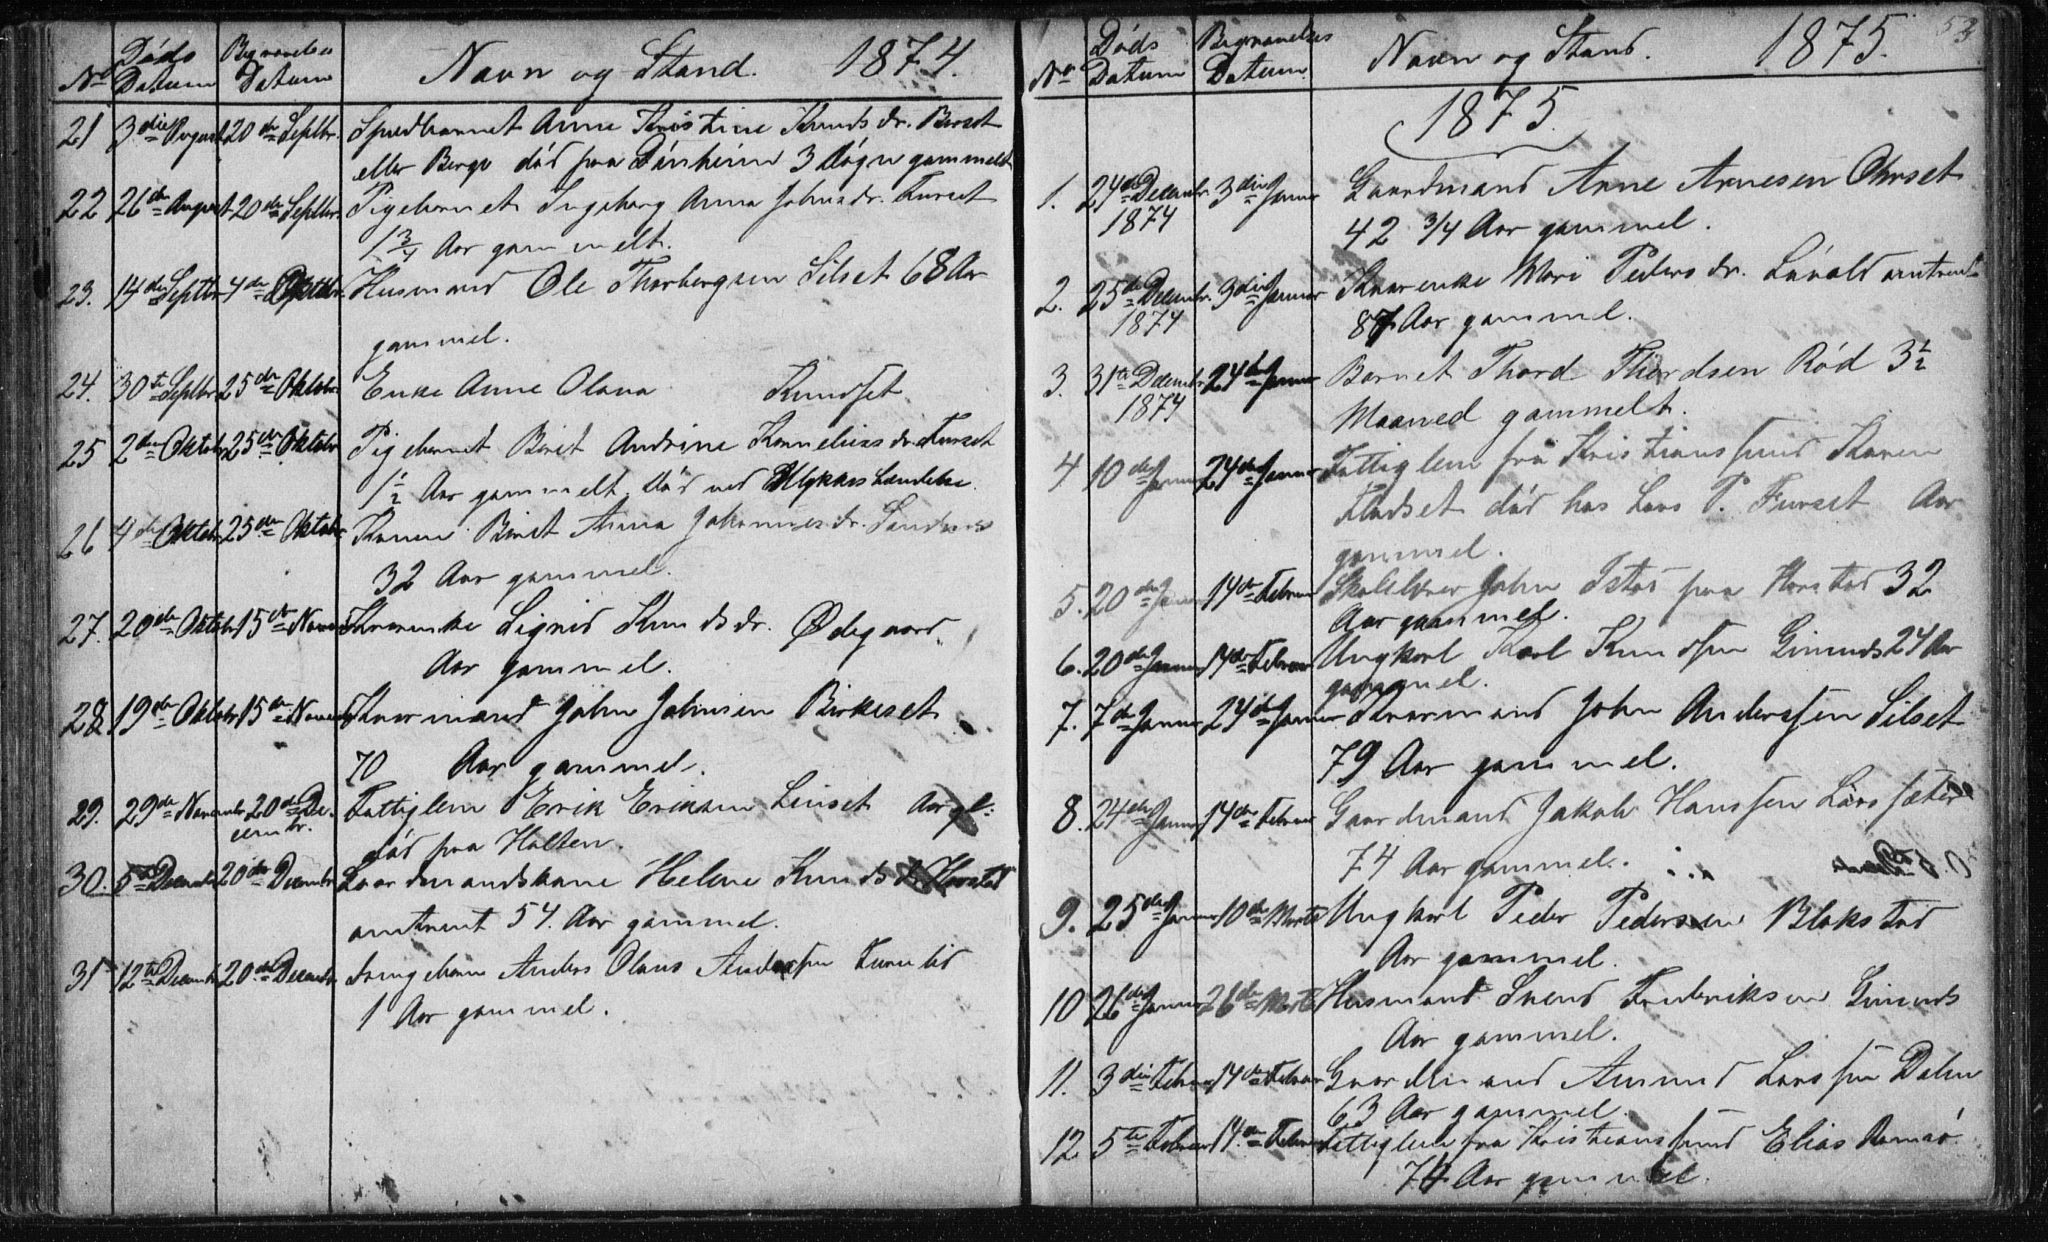 No Døds Datum Begravelses Datum Navn og Stand. 1874.
21 3die August 20de Septbr. Spædbarnet Anne Kristine Knudsdr. Berset
eller Berge død paa Dønheim 3 Døgn gammelt
22 26de August 20de Septbr. Pigebarnet Ingeborg Anna Johnsdr. Furset
1 3/4 Aar gammelt.
23. 14de Septbr 4de Oktobr. Husmand Ole Thorbergsen Silset 68 Aar
gammel.
24. 30te Septbr. 25de Oktobr. Enke Anne Olana Knudset
25 2de Oktobr. 25de Oktobr. Pigebarnet Berit Andrine Korneliusdr. Furset
1 1/2 Aar gammelt død ved Ulykkeshændelse.
26 4de Oktobr 25de Oktobr. Konen Birit Anna Johannesdr. Sandnes
32 Aar gammel.
27. 20de Oktobr 15de Novembr Kaarenke Sigrid Knudsdr. Ødegaard.
Aar gammel.
28 19de Oktobr. 15de Novembr Kaarmand John Johnsen Birkeset
70 Aar gammel.
29. 29de Novembr 20de De-
cembr. Fattiglem Erik Eriksen Linset Aar gl:
død paa Holten.
30. 5te Decembr 20de Decembr. Gaardmandskone Helene Knudsdr. Horstad
omtrent 54. Aar gammel.
31 12te Decembr 20de Decembr. Drengebarn Anders Olaus Anderssen
1 Aar gammel.
No Døds Datum Begravelses Datum Navn og Stand. 1875. 53
1875.
1. 24de Decembr. 3die Januar Gaardmand Arne Arnesen Ohrset
1874 42 3/4 Aar gammel.
2. 25de Decembr. 3die Januar Kaarenke Mari Pedersdr. Løvold omtrent
1874 87 Aar gammel.
3. 31te Decembr 24de Januar Barnet Thord Thordsen Rød 3 1/2
1874 Maaned gammelt.
4 10de Januar 24de Januar Fattiglem fra Kristianssund Karen
Fladset død hos Lars P. Furset Aar
gammel.
5. 20de Januar 14de Februar Skolelærer John Istad paa Horstad 32
Aar gammel.
6. 20de Januar 14de Februar Ungkarl Karl Knudssen Gimnes 24 Aar
gammel.
7. 7de Januar 24de Januar Kaarmand John Anderssen Silset
79 Aar gammel.
8. 24de Januar 14de Februar Gaardmand Jakob Hanssen
74 Aar gammel.
9. 25de Januar 10de Marts Ungkarl Peder Pedersen Blakstad
Aar gammel.
10 26de Januar 26de Marts Husmand Svend Frederiksen Gimnes
Aar gammel.
11. 3die Februar 14de Februar Gaardmand Amund Larssen Dalen
63 Aar gammel.
12 5te Februar 14de Februar Fattiglem fra Kristianssund Elias Ramsø
74 Aar gammel.